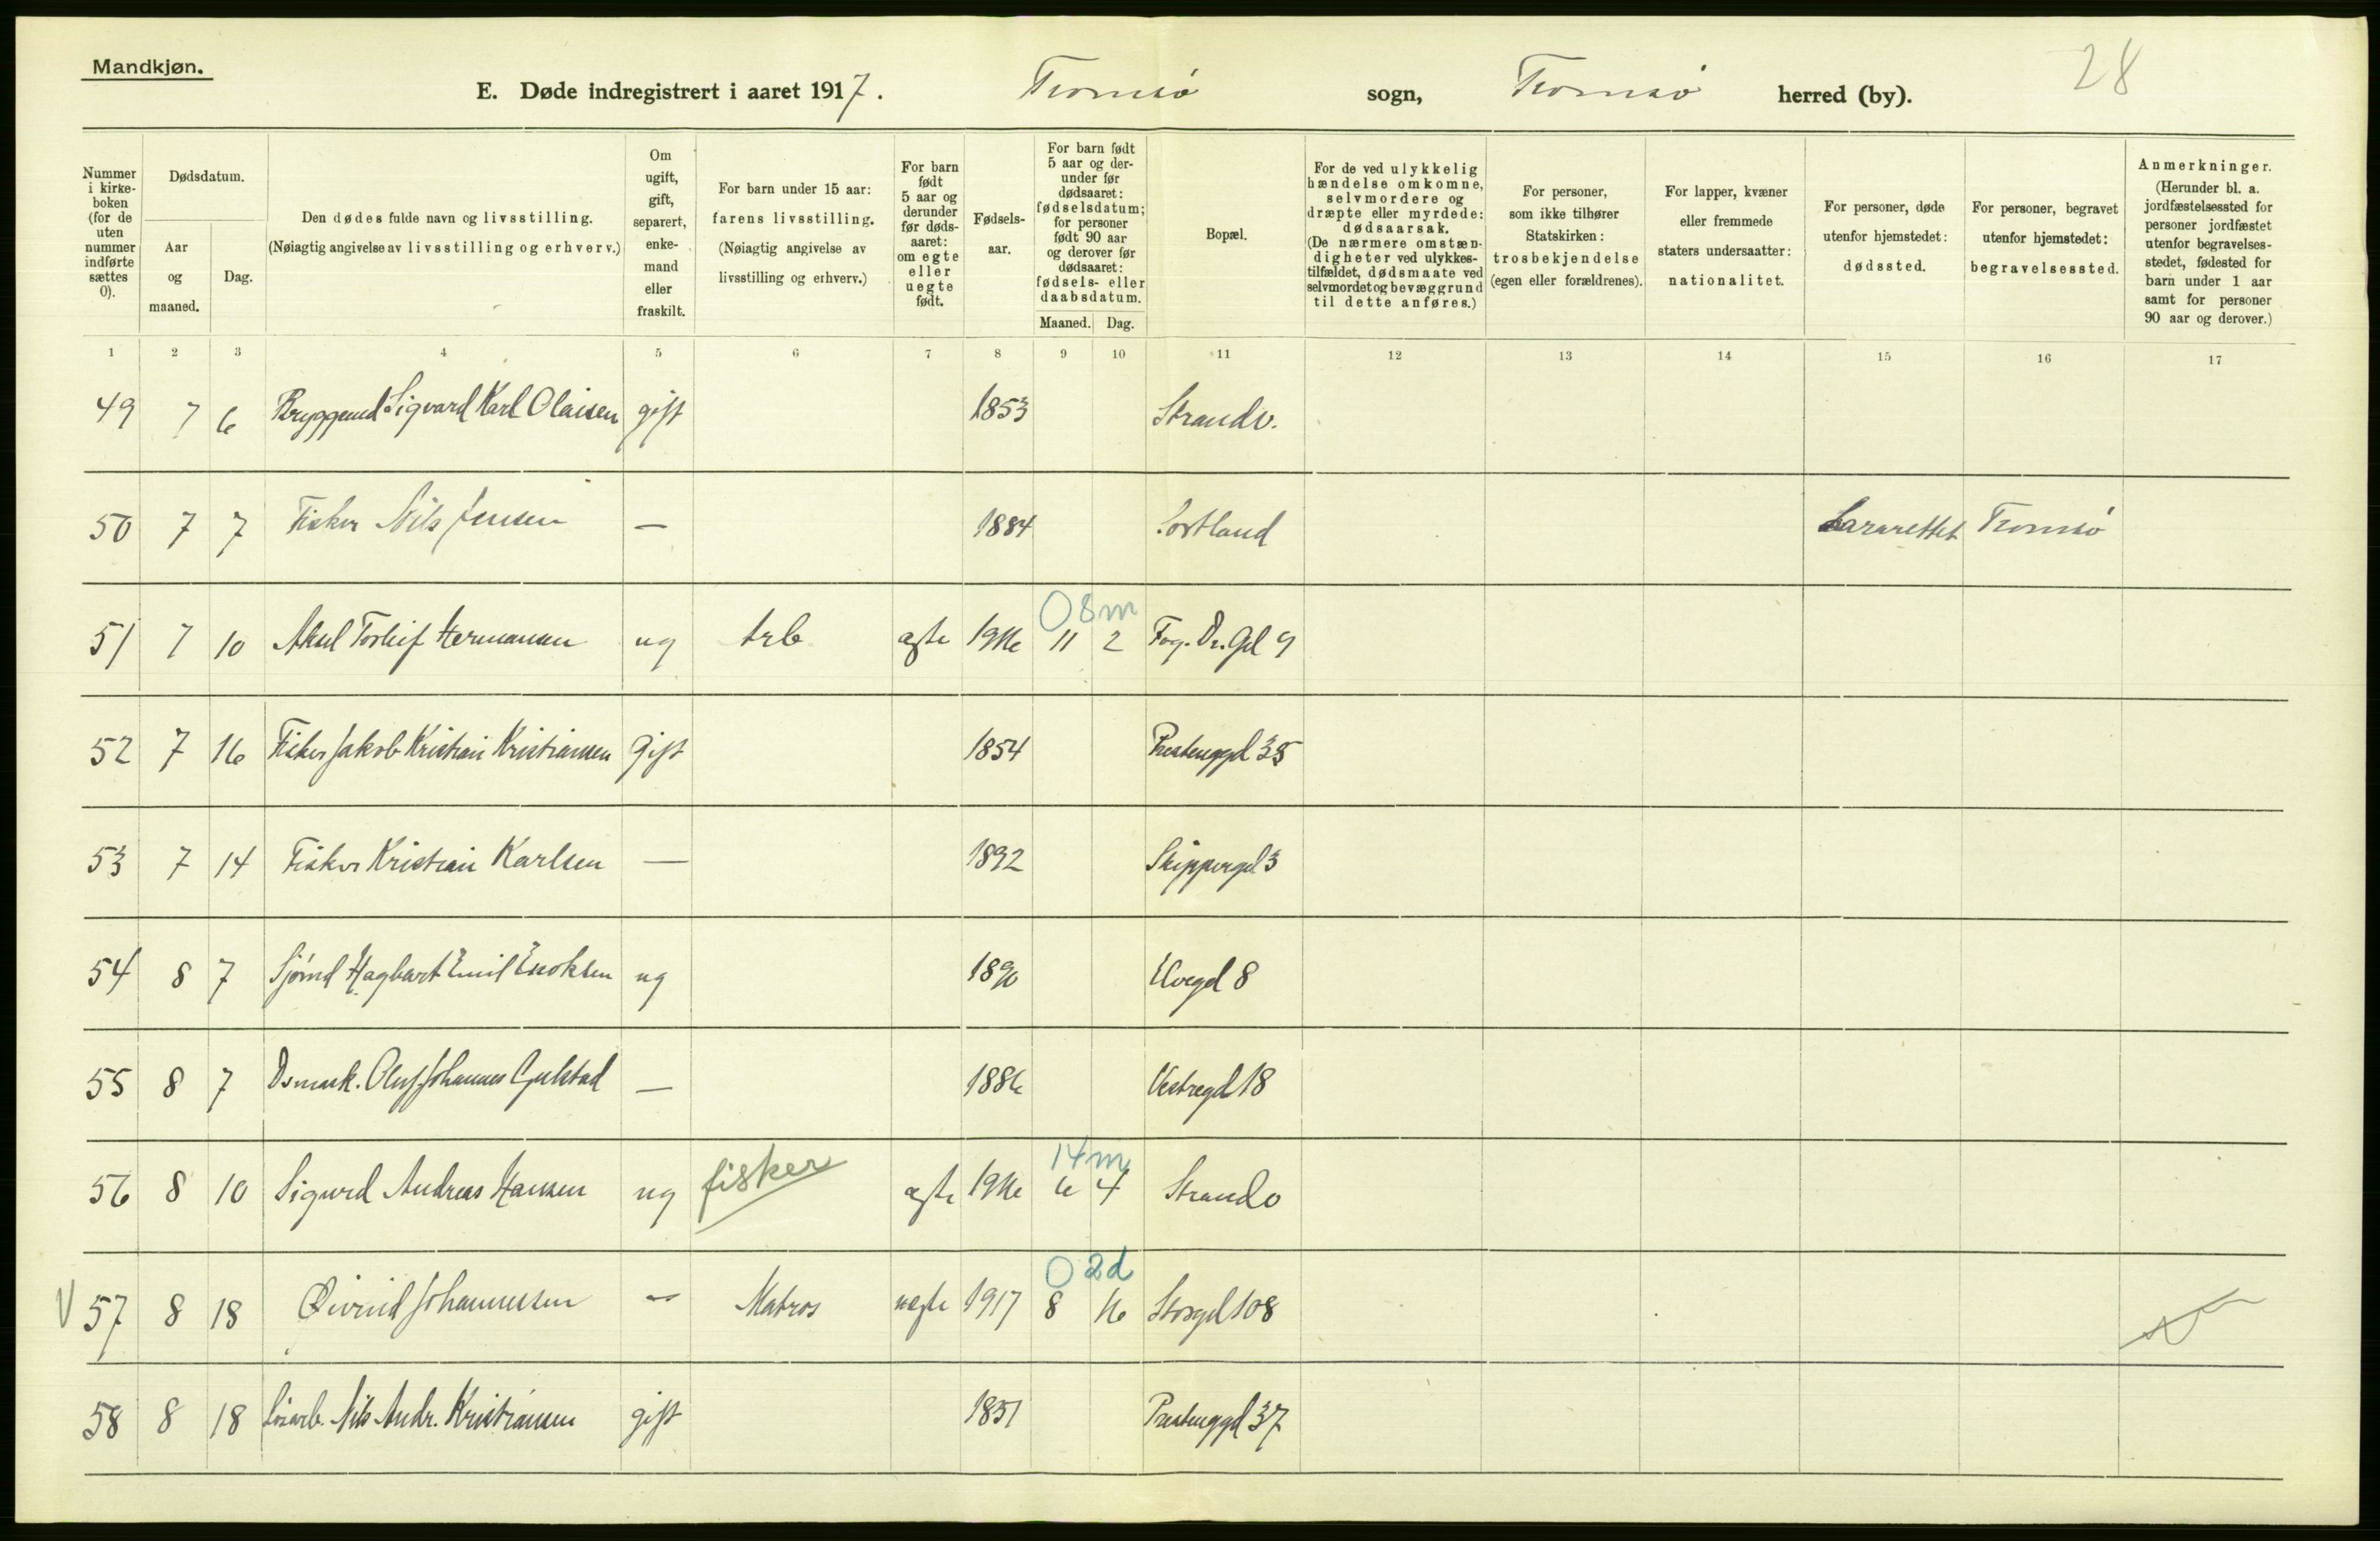 Mandkjøn.
28
E. Døde indregistrert i aaret 1917. Tromsø sogn, Tromsø herred (by).
Nummer i kirke-boken (for de uten nummer indførte sættes 0).
Dødsdatum.
Aar og maaned.
Dag.
Den dødes fulde navn og livsstilling.
(Nøiagtig angivelse av livsstilling og erhverv.)
Om ugift, gift, separert, enke-mand eller fraskilt.
For barn under 15 aar: farens livsstilling. (Nøiagtig angivelse av livsstilling og erhverv.)
For barn født 5 aar og derunder før døds-aaret: om egte eller uegte født.
Fødsels-aar.
For barn født 5 aar og der-under før dødsaaret: fødselsdatum; for personer født 90 aar og derover før dødsaaret: fødsels- eller daabsdatum.
Maaned. Dag.
Bopæl.
For de ved ulykkelig hændelse omkomne, selvmordere og dræpte eller myrdede: dødsaarsak. (De nærmere omstæn-digheter ved ulykkes-tilfældet, dødsmaate ved selvmordet og bevæggrund til dette anføres.)
For personer, som ikke tilhører Statskirken: trosbekjendelse (egen eller forældrenes).
For lapper, kvæner eller fremmede staters undersaatter: nationalitet.
For personer, døde utenfor hjemstedet: dødssted.
For personer, begravet utenfor hjemstedet: begravelsessted.
Anmerkninger. (Herunder bl. a. jordfæstelsessted for personer jordfæstet utenfor begravelses-stedet, fødested for barn under 1 aar samt for personer 90 aar og derover.)
1 2 3 4 5 6 7 8 9 10 11 12 13 14 15 16 17
49 7 6 Bryggemd Sigvard Karl Olaisen gift 1853 Strandv.
50 7 7 Fisker Nils Jensen — 1884 Sortland Lazarettet Tromsø
0 8m
51 7 10 Aksel Torleif Hermansen ug Arb egte 1916 11 2 Fog. Dr. Gd 9
52 7 16 Fisker Jakob Kristian Kristiansen Gift 1854 Prestenggd 35
53 7 14 Fisker Kristian Karlsen — 1892 Skippergd 3
54 8 7 Sjømd Hagbart Emil Enoksen ug 1890 Elvegd 8
55 8 7 Olaf Johannes Gulstad — 1886 Vestregd 18
14m
56 8 10 Sigurd Andreas Hansen ug fisker egte 1916 6 4 Strandv
0 2d
V 57 8 18 Øivind Johannessen — Matros uegte 1917 8 16 Storgd 108
58 8 18 Løsarb. Nils Andr. Kristiansen gift 1851 Prestenggd 37